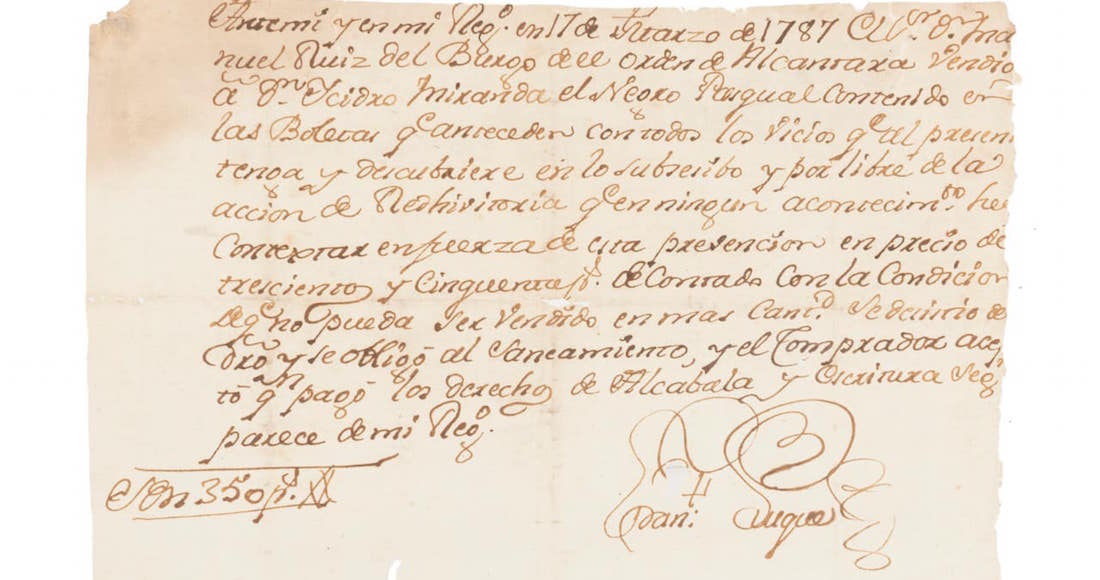 Antemi y en mi Rexº. en 17 de Marzo de 1787 El Sr. Dn. Ma
nuel Ruiz del Burgo del orden de Alcantara Vendio
a Dn. Icidro Miranda el Negro Pasqual Contenido en
las Boletas qe anteceden con todos los Vicios qe al presen
tenga y descubriere en lo subsesibo y por libre de la
accion de Redhivitoria qe en ningun acontecimto. ha
Contextar en fuerza de esta prevencion en precio de
trescientos y Cinquenta ps. de Contado con la Condicion
de qe no pueda ser Vendido en mas Cantd. Se decistio de
dro y se obligó al Saneamiento, y el Comprador acep
tó qn pagó los derechos de Alcabala y Escritura Segn
parece de mi Rexº.
Son 350 ps.